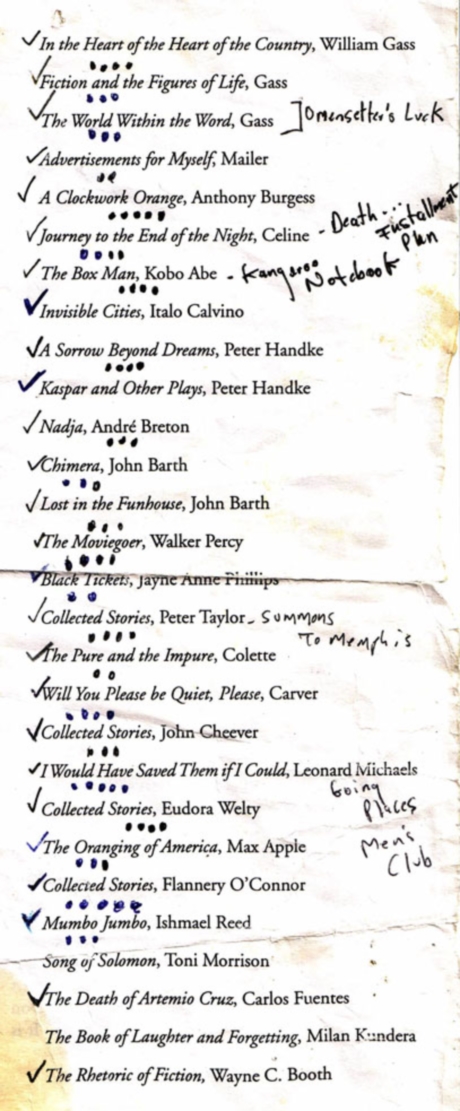 In the Heart of the Heart of the Country, William Gass
Fiction and the Figures of Life, Gass
The World Within the Word, Gass ] Omensetter's Luck
Advertisements for Myself, Mailer
A Clockwork Orange, Anthony Burgess
Journey to the End of the Night, Celine - Death... Installment Plan
The Box Man, Kobo Abe - Kangaroo Notebook
Invisible Cities, Italo Calvino
A Sorrow Beyond Dreams, Peter Handke
Kaspar and Other Plays, Peter Handke
Nadja, André Breton
Chimera, John Barth
Lost in the Funhouse, John Barth
The Moviegoer, Walker Percy
Black Tickets, Jayne Anne Phillips
Collected Stories, Peter Taylor - Summons
To Memphis
The Pure and the Impure, Colette
Will You Please be Quiet, Please, Carver
Collected Stories, John Cheever
I Would Have Saved Them if I Could, Leonard Michaels
Going
Places
Collected Stories, Eudora Welty
Men's
Club
The Oranging of America, Max Apple
Collected Stories, Flannery O'Connor
Mumbo Jumbo, Ishmael Reed
Song of Solomon, Toni Morrison
The Death of Artemio Cruz, Carlos Fuentes
The Book of Laughter and Forgetting, Milan Kundera
The Rhetoric of Fiction, Wayne C. Booth